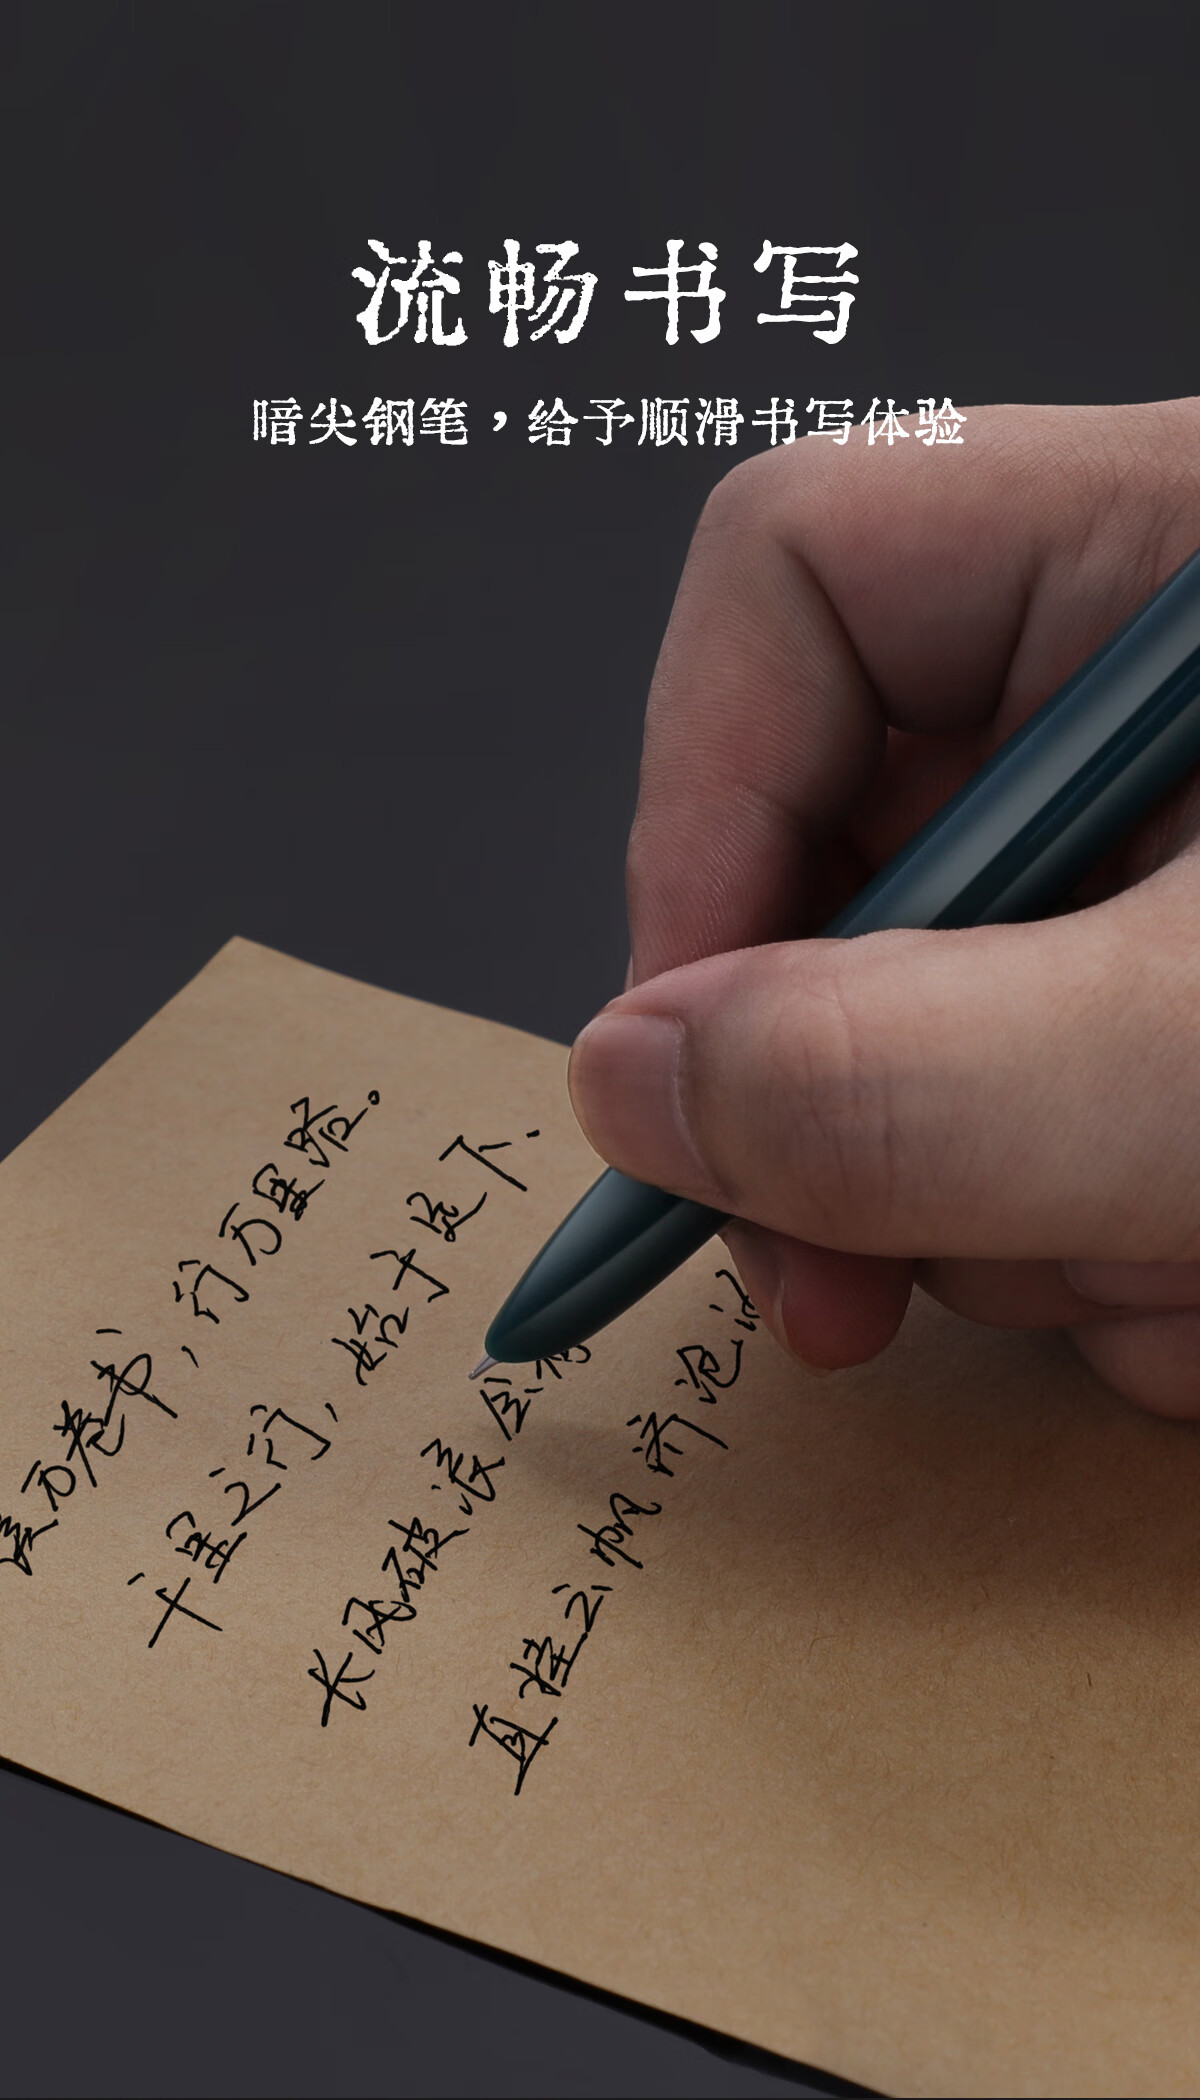 流畅书写
暗尖钢笔，给予顺滑书写体验
万卷书，行万里路。
千里之行，始于足下.
长风破浪会有
直挂云帆济沧